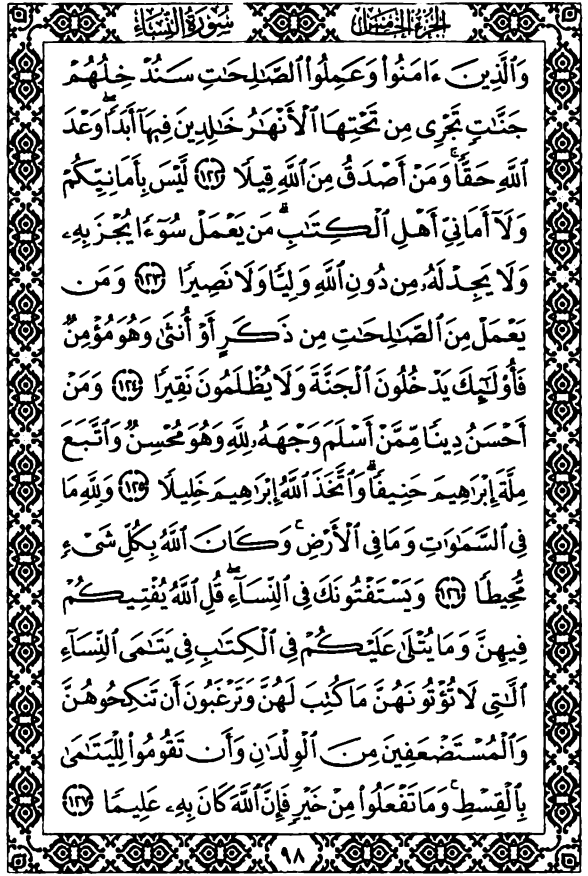 الجزء الخامس سورة النساء
وَٱلَّذِينَ ءَامَنُوا۟ وَعَمِلُوا۟ ٱلصَّٰلِحَٰتِ سَنُدْخِلُهُمْ
جَنَّٰتٍ تَجْرِى مِن تَحْتِهَا ٱلْأَنْهَٰرُ خَٰلِدِينَ فِيهَآ أَبَدًا ۖ وَعْدَ
ٱللَّهِ حَقًّا ۚ وَمَنْ أَصْدَقُ مِنَ ٱللَّهِ قِيلًا ١٢٢ لَّيْسَ بِأَمَانِيِّكُمْ
وَلَآ أَمَانِىِّ أَهْلِ ٱلْكِتَٰبِ ۗ مَن يَعْمَلْ سُوٓءًا يُجْزَ بِهِۦ
وَلَا يَجِدْ لَهُۥ مِن دُونِ ٱللَّهِ وَلِيًّا وَلَا نَصِيرًا ١٢٣ وَمَن
يَعْمَلْ مِنَ ٱلصَّٰلِحَٰتِ مِن ذَكَرٍ أَوْ أُنثَىٰ وَهُوَ مُؤْمِنٌ
فَأُو۟لَٰٓئِكَ يَدْخُلُونَ ٱلْجَنَّةَ وَلَا يُظْلَمُونَ نَقِيرًا ١٢٤ وَمَنْ
أَحْسَنُ دِينًا مِّمَّنْ أَسْلَمَ وَجْهَهُۥ لِلَّهِ وَهُوَ مُحْسِنٌ وَٱتَّبَعَ
مِلَّةَ إِبْرَٰهِيمَ حَنِيفًا ۗ وَٱتَّخَذَ ٱللَّهُ إِبْرَٰهِيمَ خَلِيلًا ١٢٥ وَلِلَّهِ مَا
فِى ٱلسَّمَٰوَٰتِ وَمَا فِى ٱلْأَرْضِ ۚ وَكَانَ ٱللَّهُ بِكُلِّ شَىْءٍ
مُّحِيطًا ١٢٦ وَيَسْتَفْتُونَكَ فِى ٱلنِّسَآءِ ۖ قُلِ ٱللَّهُ يُفْتِيكُمْ
فِيهِنَّ وَمَا يُتْلَىٰ عَلَيْكُمْ فِى ٱلْكِتَٰبِ فِى يَتَٰمَى ٱلنِّسَآءِ
ٱلَّٰتِى لَا تُؤْتُونَهُنَّ مَا كُتِبَ لَهُنَّ وَتَرْغَبُونَ أَن تَنكِحُوهُنَّ
وَٱلْمُسْتَضْعَفِينَ مِنَ ٱلْوِلْدَٰنِ وَأَن تَقُومُوا۟ لِلْيَتَٰمَىٰ
بِٱلْقِسْطِ ۚ وَمَا تَفْعَلُوا۟ مِنْ خَيْرٍ فَإِنَّ ٱللَّهَ كَانَ بِهِۦ عَلِيمًا ١٢٧
٩٨